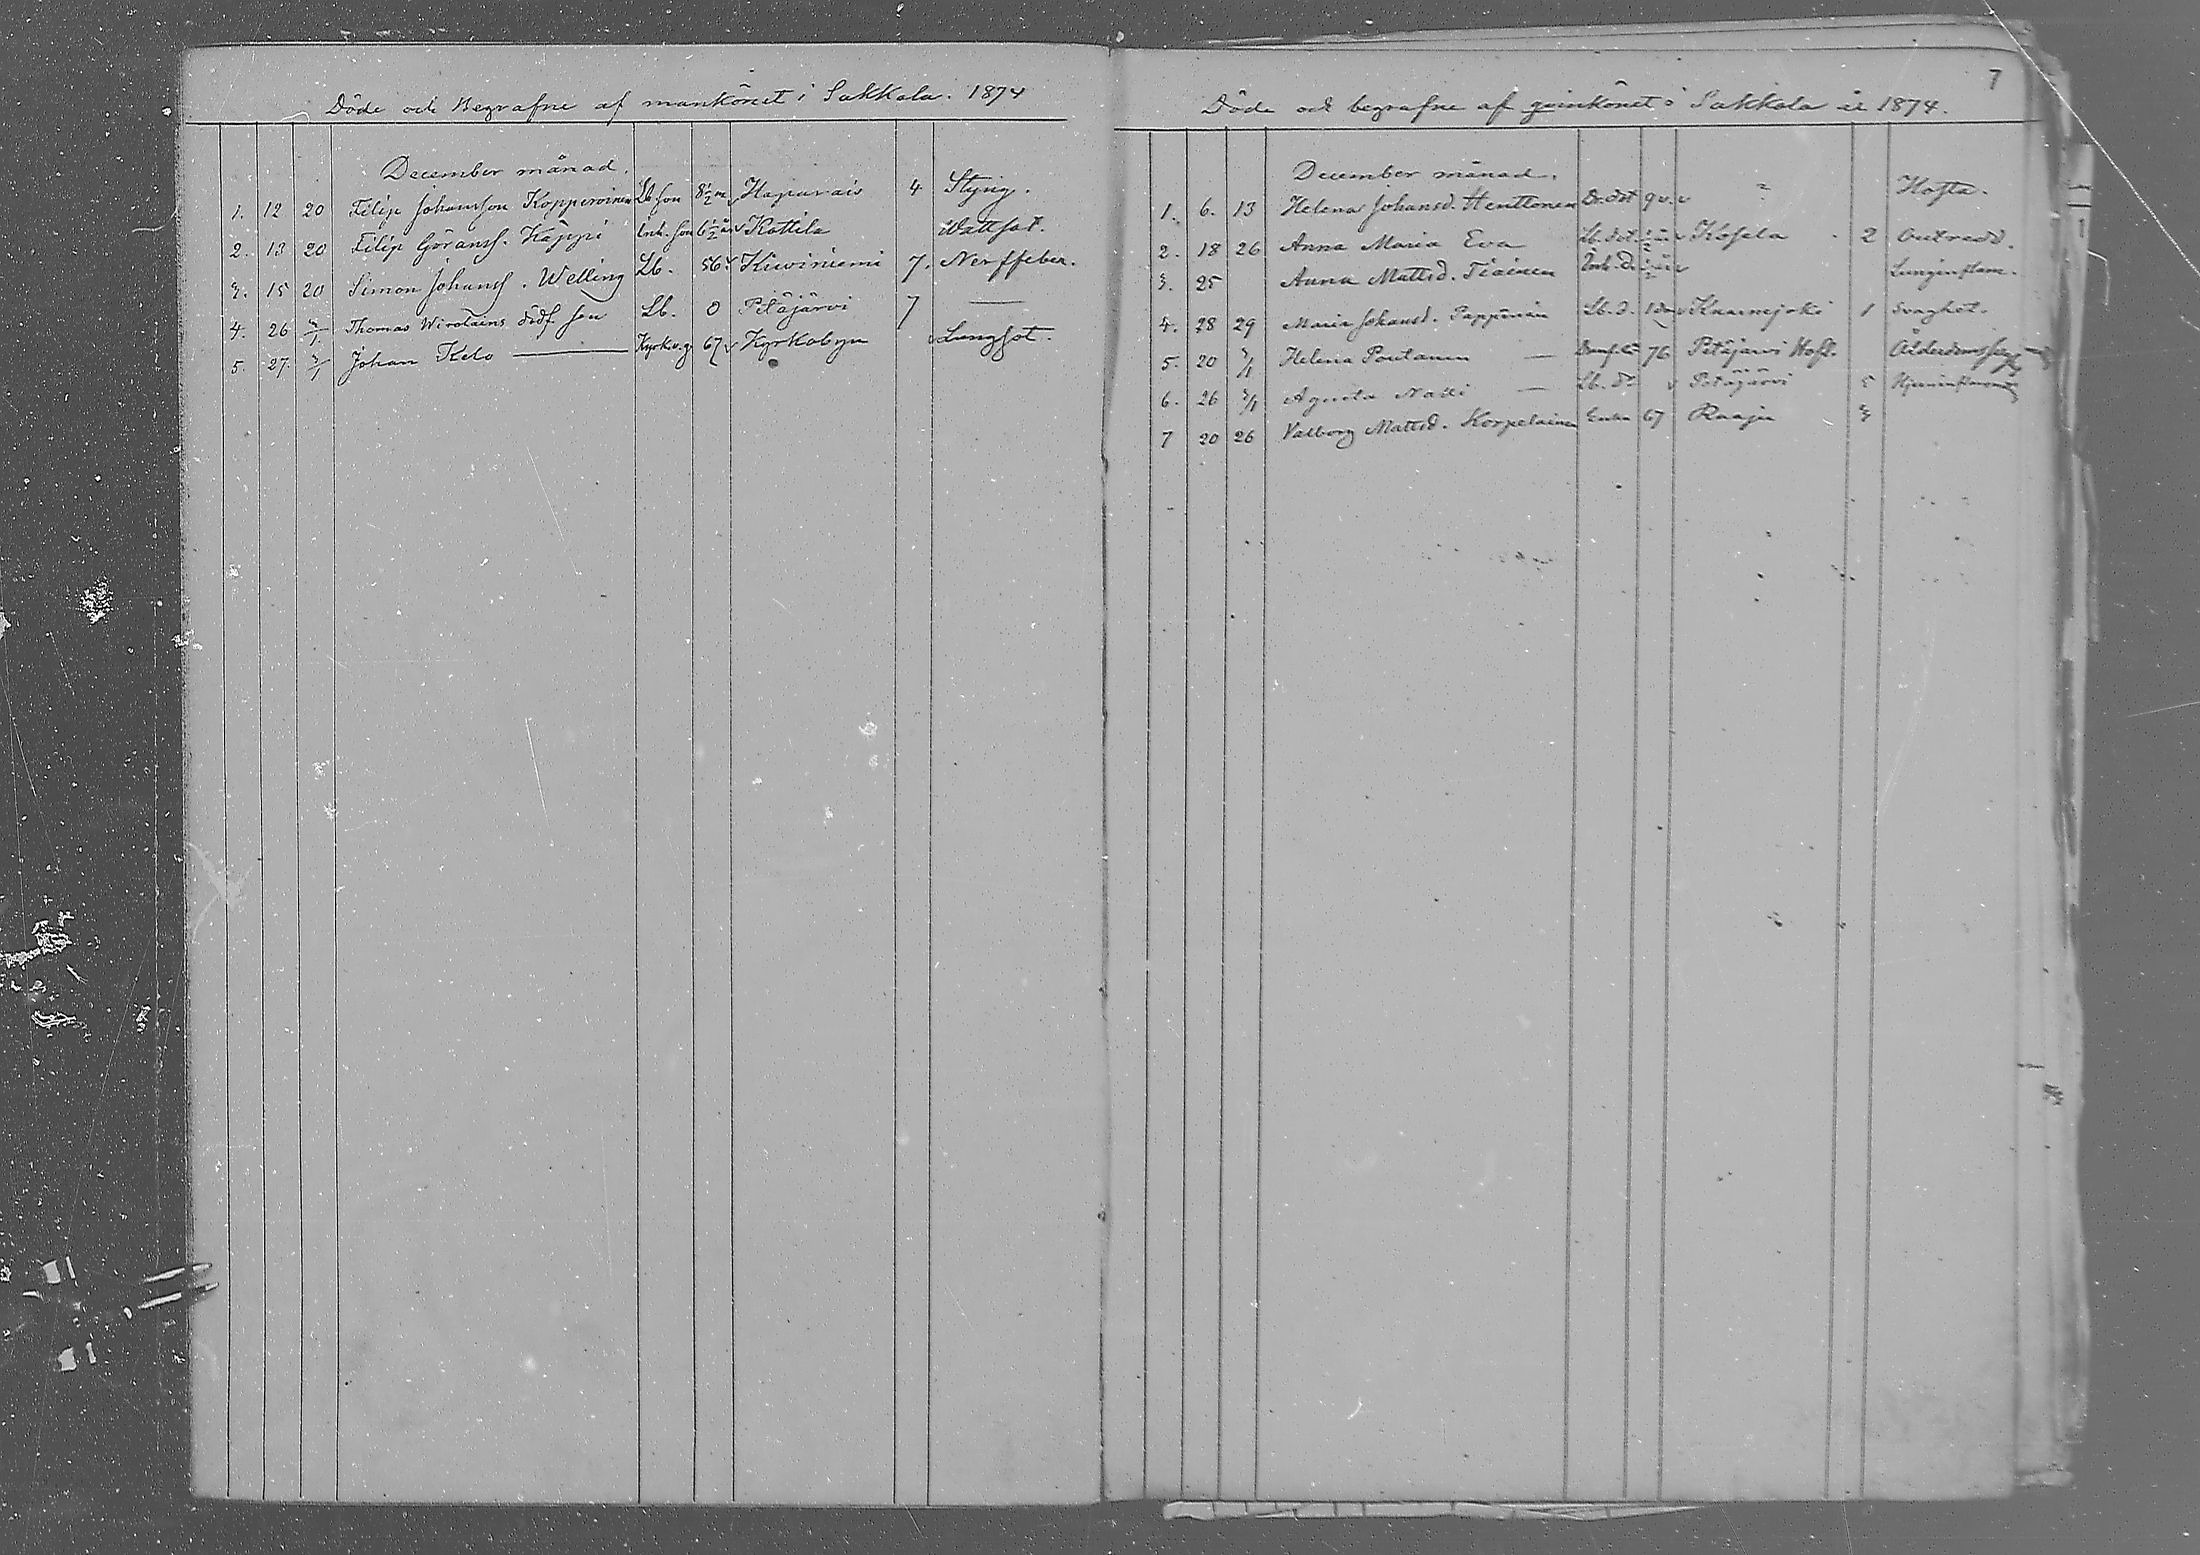 Döde och Begrafne af mankönet i Sakkola. 1874
December månad.
1. 12 20 Filip Johansson Kopperoinen Lb son 8½ m Haparais 4 Styng.
2. 13 20 Filip Göranss. Käppi Inh. son 6½ år Kottila Wattsot.
3. 15 20 Simon Johanss. Welling Lb. 56 Kiwiniemi 7. Nerffeber.
4. 26 3/1 Thomas Wirolains dödf. son Lb. 0 Pitäjärvi 7 —
5. 27. 3/1 Johan Kelo — 67 Kyrkobyn Lungsot.
7
Döde och begrafne af qvinkönet i Sakkola år 1874.
December månad.
1. 6. 13 Helena Johansd. Henttonen Dr. dot 9 v. " Hosta.
2. 18 26 Anna Maria Eva Lb. dot. ½ år Kåsela 2
3. 25 Anna Mattsd. Tiainen Inh. D. ½ år Lunginflam.
4. 28 29 Maria Johansd. Pappinen Lb. d. Knaapejoki 1 Svaghet.
5. 20 3/1 Helena Poutanen — 76 Pitäjärvi Hof.
6. 26 3/1 Agneta Naski — Lb. Pitäjärvi 5
7 20 26 Valborg Mattsd. Korpelainen Enka 67 Raaju 3